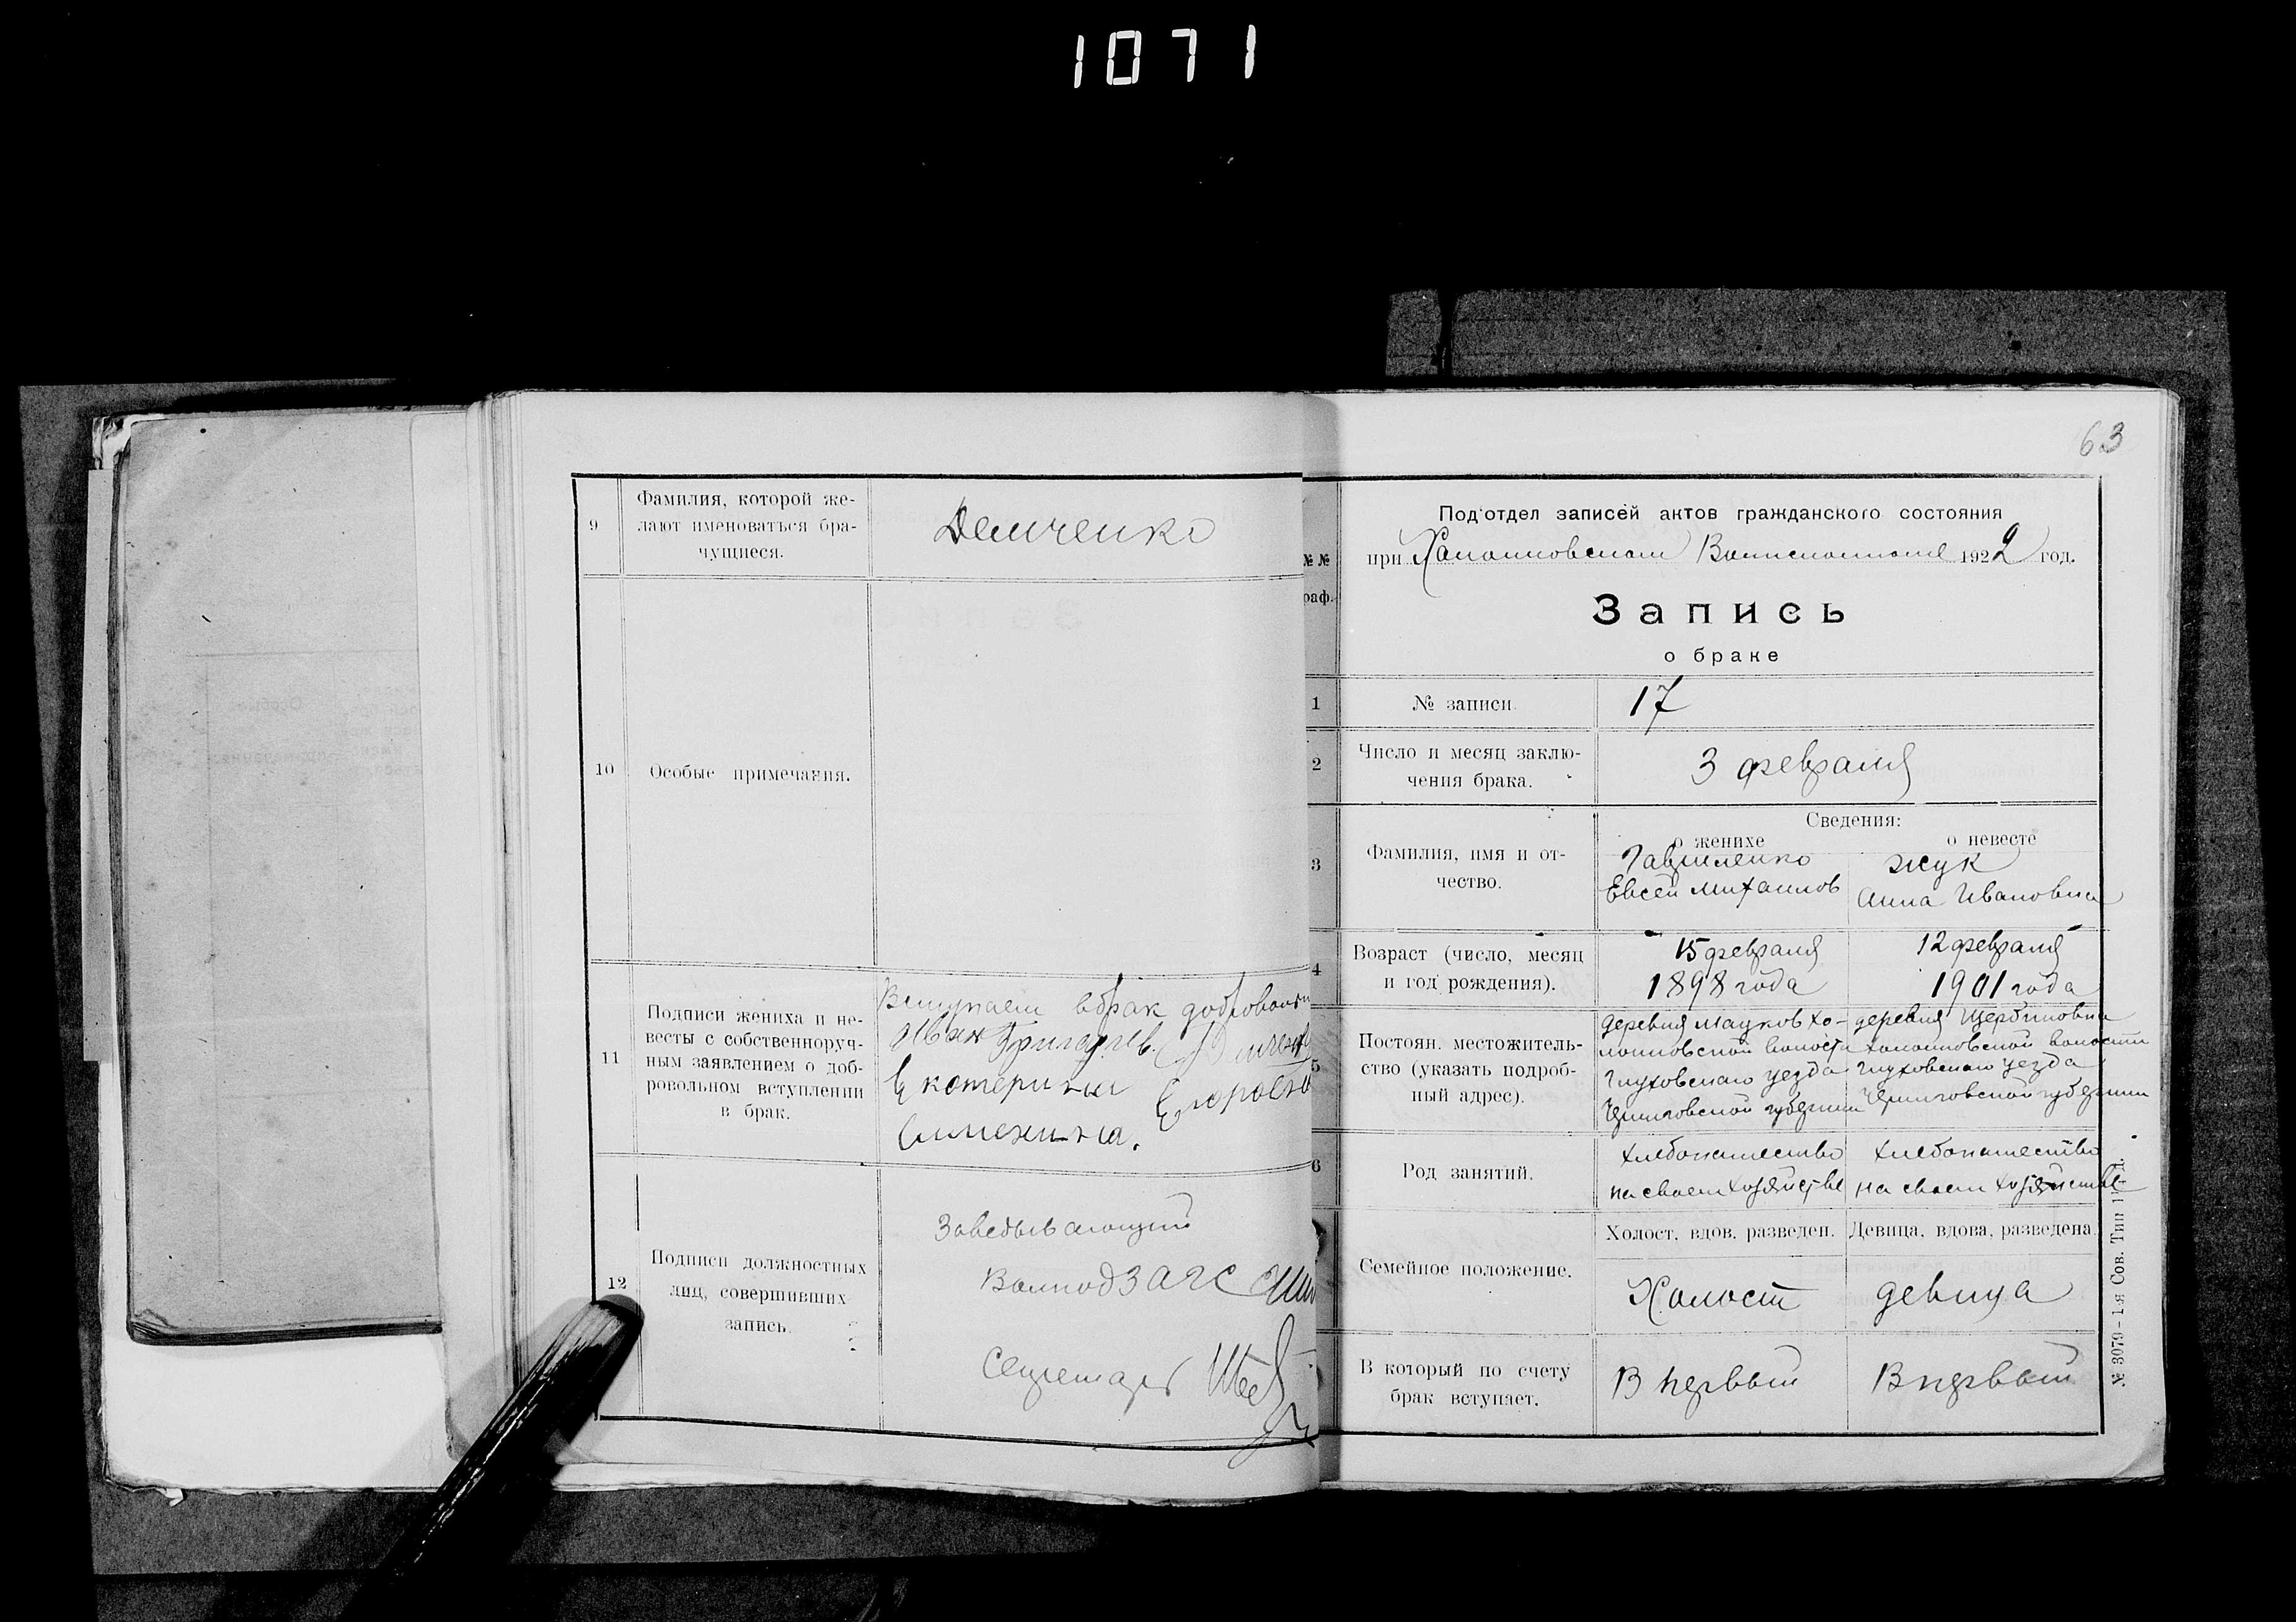 1071
9
Фамилия, которой же-
лают именоваться бра-
чущиеся.
Демченко
10
Особые примечания.
11
Подписи жениха и не-
весты с собственноруч-
ным заявлением о доб-
ровольном вступлении
в брак.
Вступаем в брак
Иван
Екатерина
12
Подписи должностных
лиц, совершивших
запись.
Заведывающий
ВолподЗАГС
Секретарь
63
Подотдел записей актов гражданского состояния
при 1922 год.
№ №
раф.
Запись
о браке
1
№ записи
17
2
Число и месяц заклю-
чения брака.
3 февраля
Сведения:
о женихе
о невесте
3
Фамилия, имя и от-
чество.
Гавриленко
Евсей Михаилов
Жук
Анна Ивановна
4
Возраст (число, месяц
и год рождения).
15 февраля
1898 года
12 февраля
1901 года
5
Постоян. местожитель-
ство (указать подроб-
ный адрес).
деревня Мацков Хо-
волости
Глуховского уезда
Черниговской губернии
деревня Щербиновка
волости
Глуховского уезда
Черниговской губернии
6
Род занятий.
хлебопашество
на своем хозяйстве
хлебопашество
на своем хозяйстве
Семейное положение.
Холост, вдов, разведен.
Девица, вдова, разведена.
Холост
девица
В который по счету
брак вступает.
В первый
В первый
№ 3079 – 1-я Сов. Тип